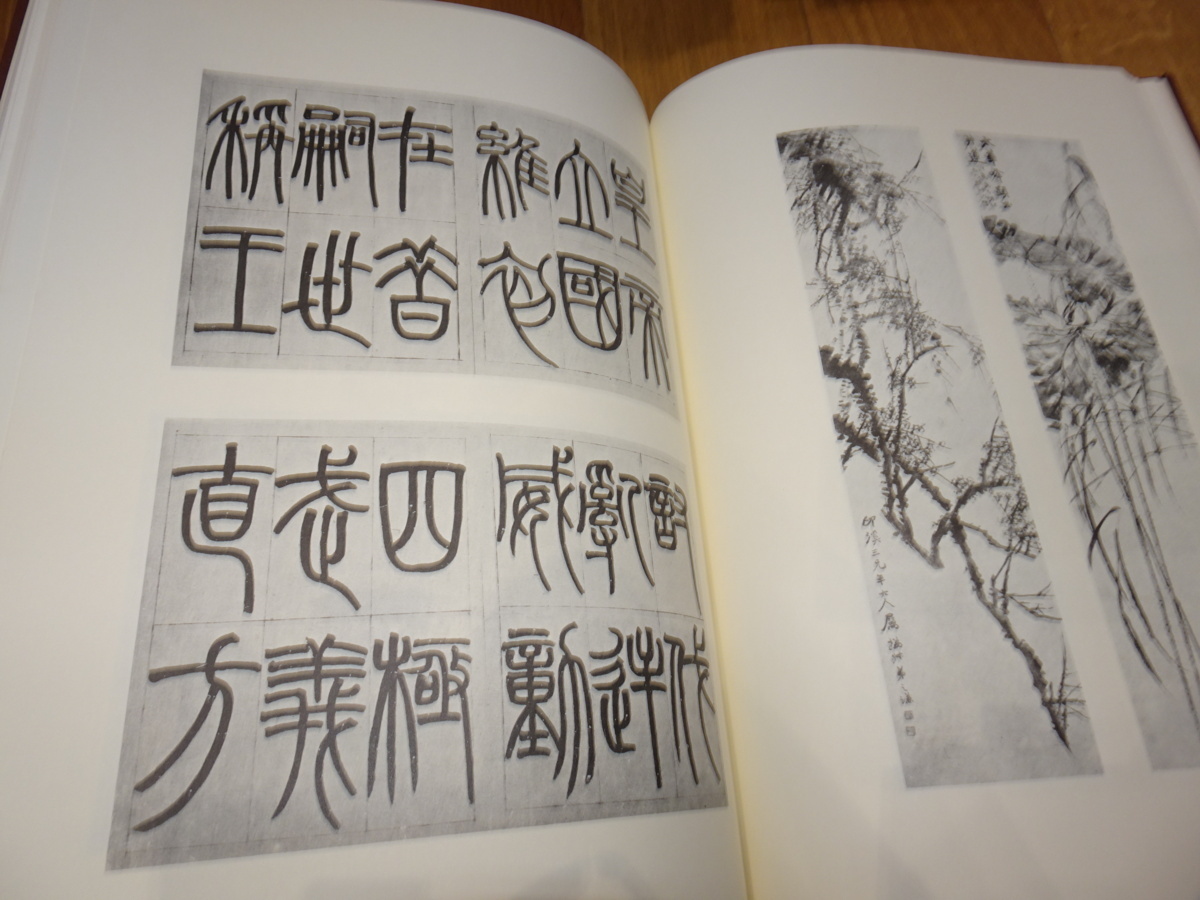 皇帝
立國
維初
在昔
嗣世
稱王
討伐
亂逆
威動
四極
武義
直方